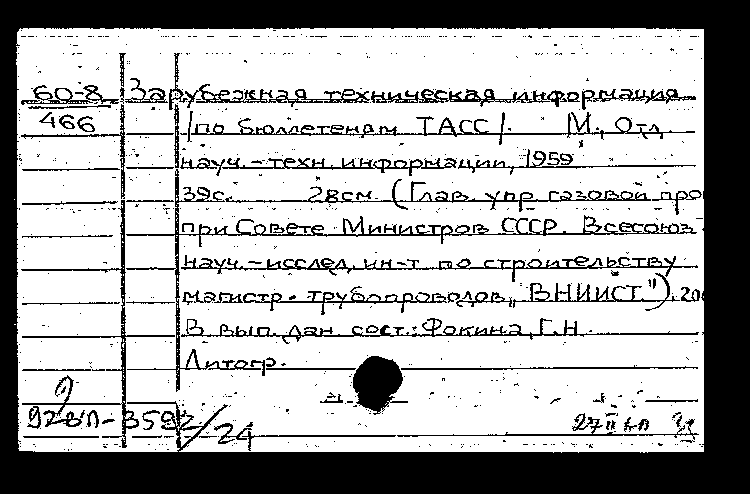 60-8 Зарубежная техническая информация
466 /по бюллетеням ТАСС/. М., Отд.
науч.-техн. информации, 1959
39с. 28см. (Глав. упр. газовой про
при Совете Министров СССР. Всесоюз.
науч.-исслед. ин-т по строительству
магистр. трубопроводов „ВНИИСТ"). 200
В вып. дан. сост.: Фокина, Г.Н.
Литогр.
92вп-3592/24 27 II